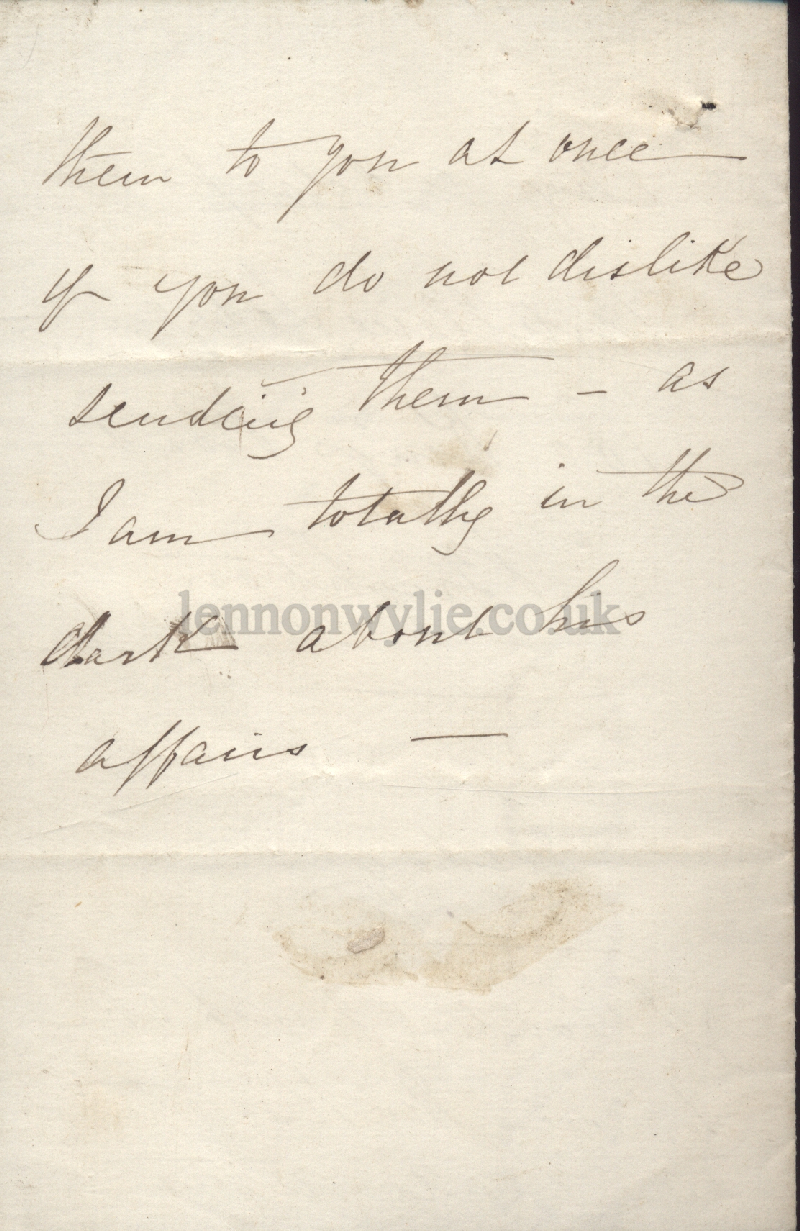 them to you at once
if you do not dislike
sending them – as
I am totally in the
dark about his
lennonwylie.co.uk
affairs —